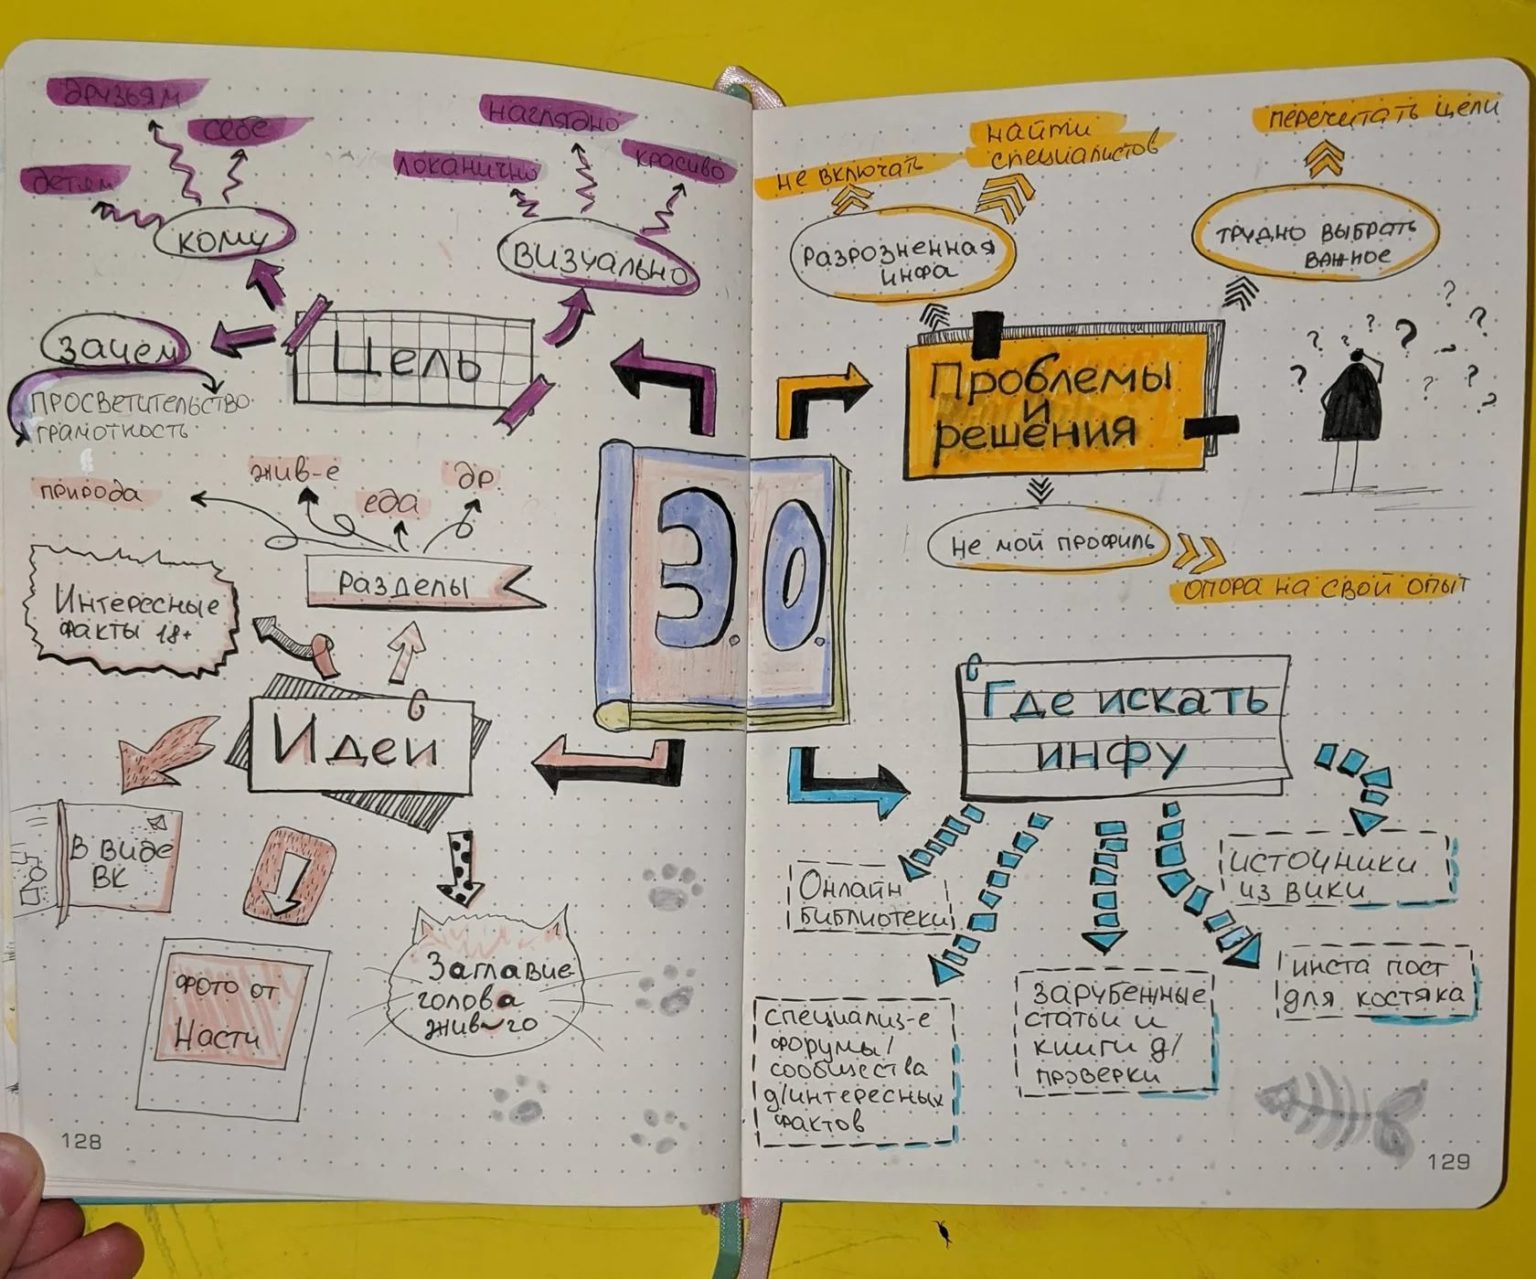 друзьям
себе
детям
кому
наглядно
локанично
красиво
визуально
зачем
Цель
просветительство
грамотность
природа
жив-е
еда
др.
разделы
Интересные
факты 18+
Идеи
В виде
ВК
фото от
Насти
Заглавие
голова
живого
128
Э.О.
не включать
найти
специалистов
перечитать цели
разрозненная
инфа
трудно выбрать
важное
Проблемы
и
решения
? ? ? ? ? ? ? ? ?
не мой профиль
опора на свой опыт
Где искать
инфу
Онлайн
библиотеки
источники
из вики
специализ-е
форумы/
сообщества
д/интересных
фактов
зарубежные
статьи и
книги д/
проверки
инста пост
для костяка
129